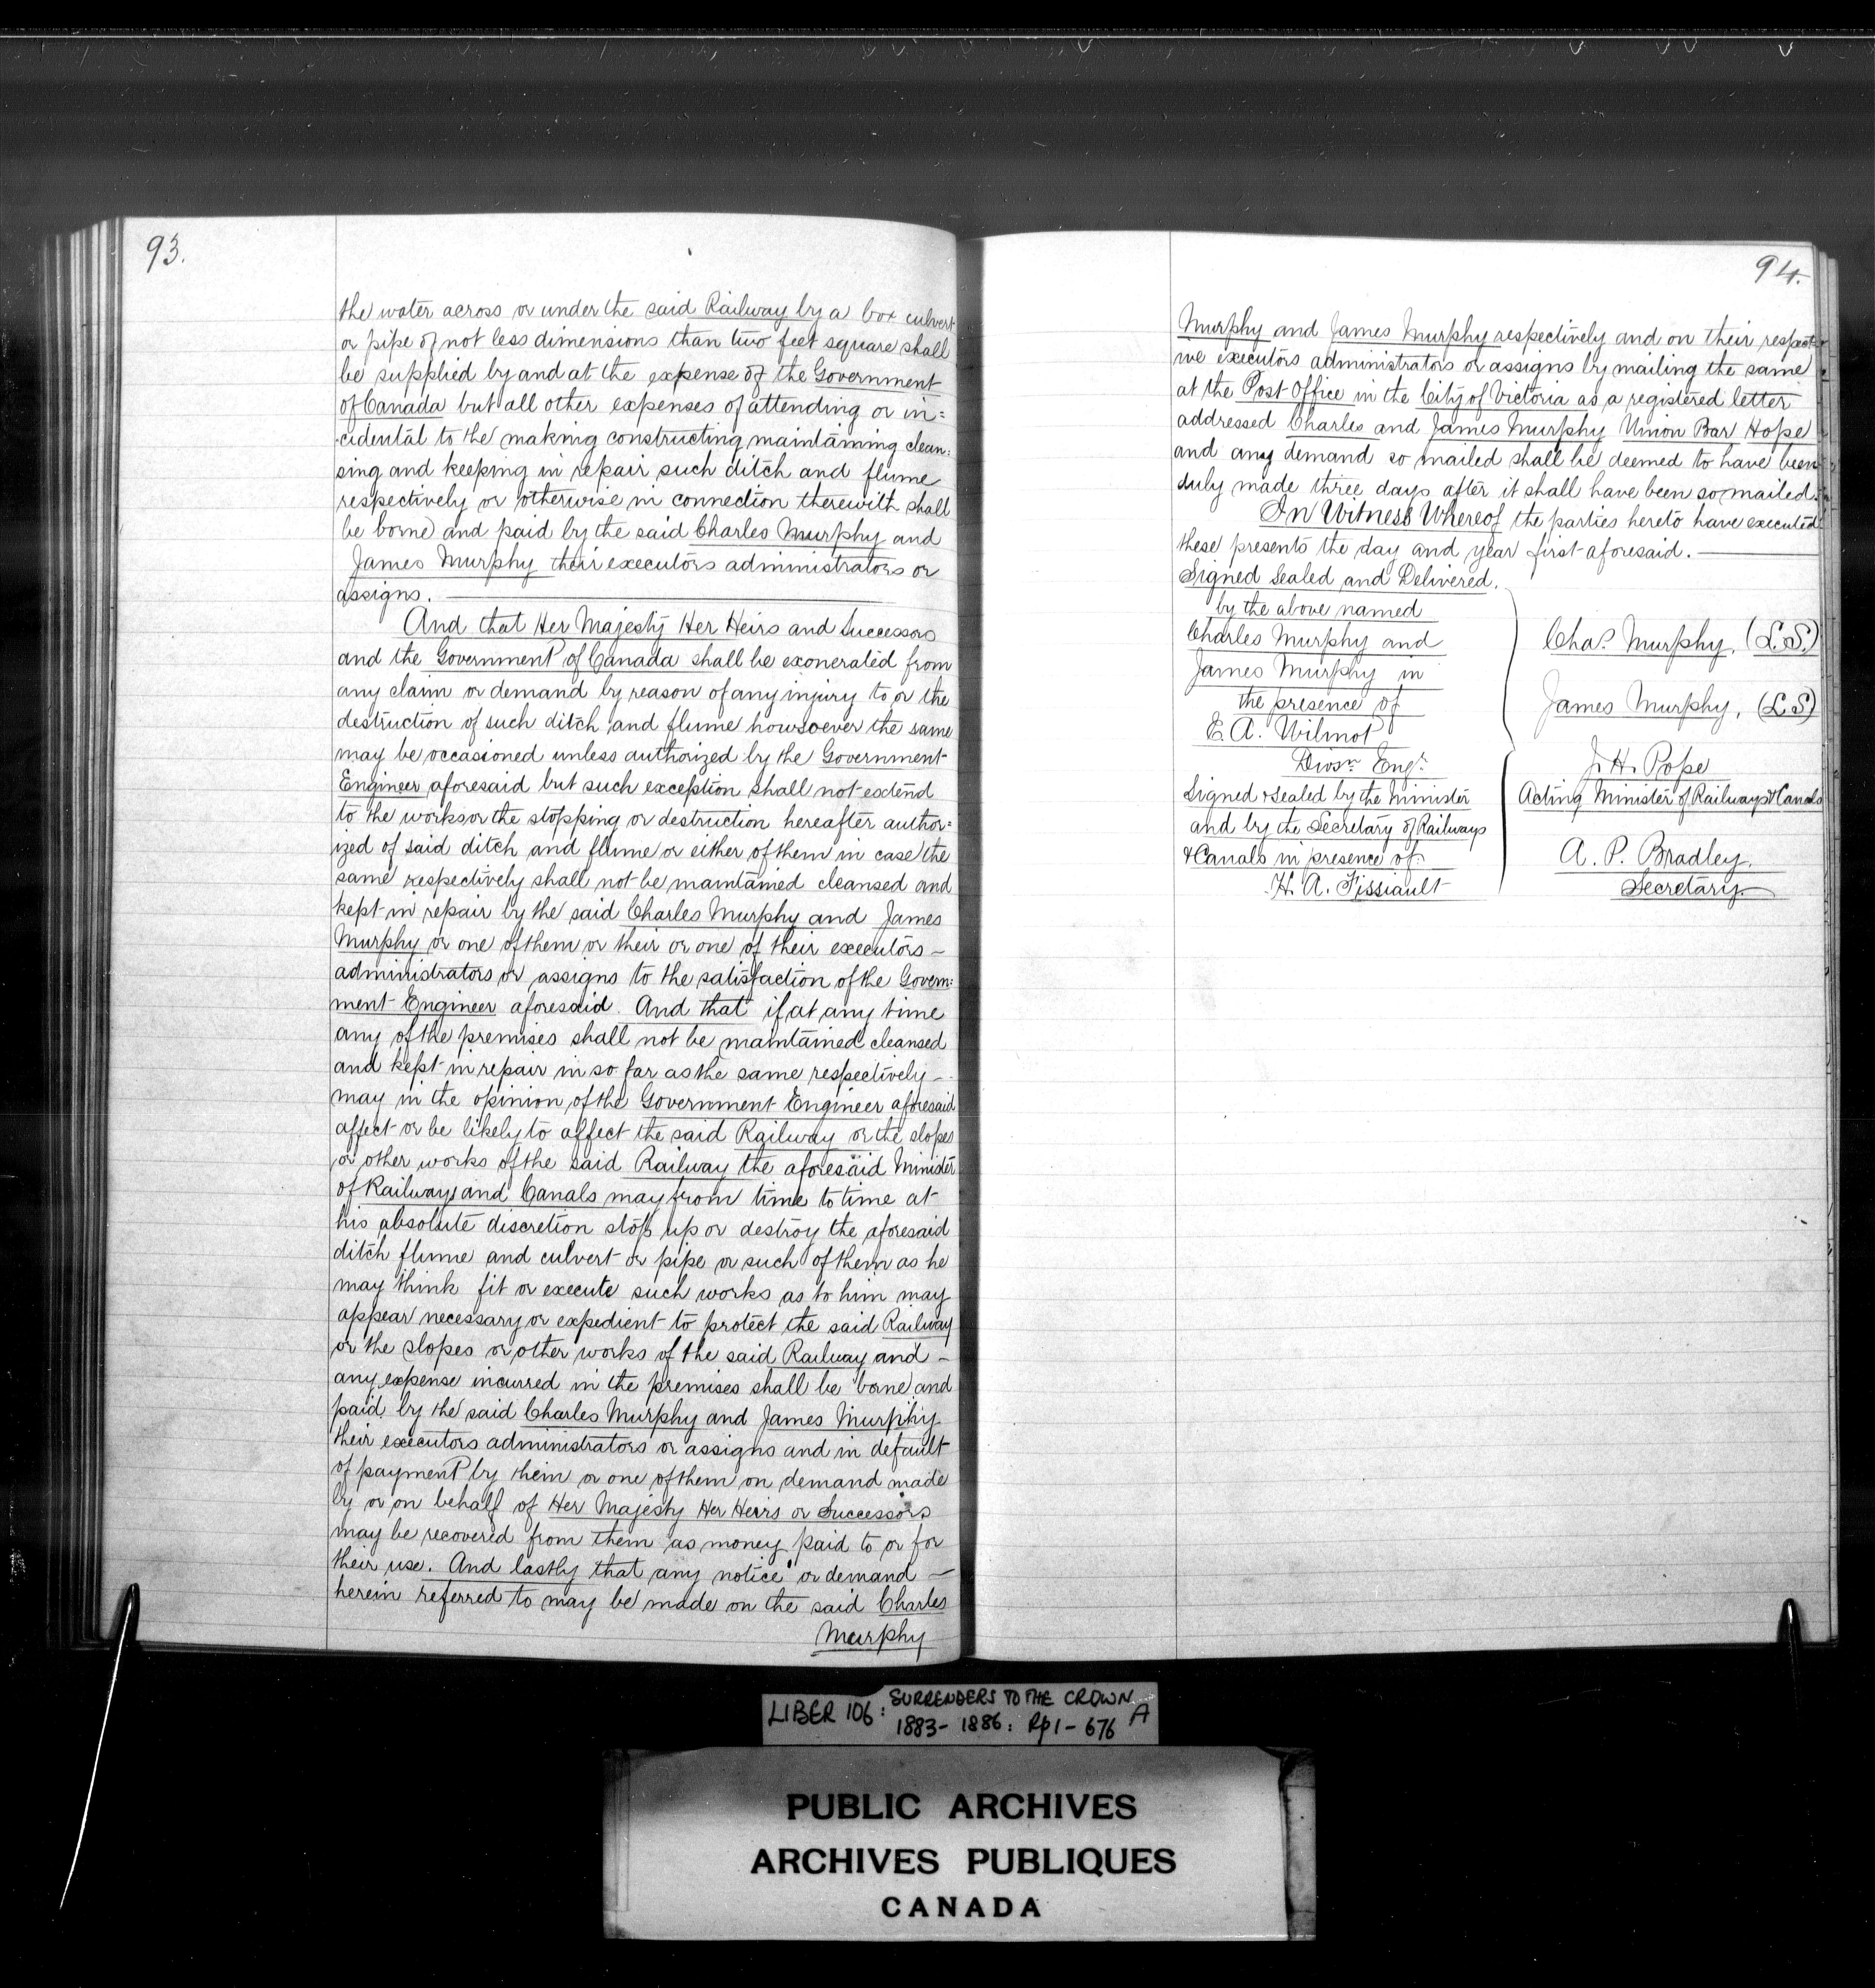 93.
the water across or under the said Railway by a box culvert
or pipe of not less dimensions than two feet square shall
be supplied by and at the expense of the Government
of Canada but all other expenses of attending or in=
cidental to the making constructing maintaining clean=
sing and keeping in repair such ditch and flume
respectively or otherwise in connection therewith shall
be borne and paid by the said Charles Murphy and
James Murphy their executors administrators or
assigns.
And that Her Majesty Her Heirs and Successors
and the Government of Canada shall be exonerated from
any claim or demand by reason of any injury to or the
destruction of such ditch and flume howsoever the same
may be occasioned unless authorized by the Government
Engineer aforesaid but such exception shall not extend
to the works or the stopping or destruction hereafter author=
ized of said ditch and flume or either of them in case the
same respectively shall not be maintained cleansed and
kept in repair by the said Charles Murphy and James
Murphy or one of them or their or one of their executors –
administrators or assigns to the satisfaction of the Govern=
ment Engineer aforesaid. And that if at any time
any of the premises shall not be maintained cleansed
and kept in repair in so far as the same respectively –
may in the opinion of the Government Engineer aforesaid
affect or be likely to affect the said Railway or the slopes
or other works of the said Railway the aforesaid Minister
of Railways and Canals may from time to time at
his absolute discretion stop up or destroy the aforesaid
ditch flume and culvert or pipe or such of them as he
may think fit or execute such works as to him may
appear necessary or expedient to protect the said Railway
or the slopes or other works of the said Railway and –
any expense incurred in the premises shall be borne and
paid by the said Charles Murphy and James Murphy
their executors administrators or assigns and in default
of payment by them or one of them on demand made
by or on behalf of Her Majesty Her Heirs or Successors
may be recovered from them as money paid to or for
their use. And lastly that any notice or demand –
herein referred to may be made on the said Charles
Murphy
94.
Murphy and James Murphy respectively and on their respect=
ive executors administrators or assigns by mailing the same
at the Post Office in the City of Victoria as a registered letter
addressed Charles and James Murphy Union Bar Hope
and any demand so mailed shall be deemed to have been
duly made three days after it shall have been so mailed.
In Witness Whereof the parties hereto have executed
these presents the day and year first aforesaid.
Signed Sealed and Delivered
by the above named
Charles Murphy and
James Murphy in
the presence of
E. A. Wilmot
Divsn. Engr.
Chas. Murphy, (L.S.)
James Murphy, (LS)
Signed & Sealed by the Minister
and by the Secretary of Railways
& Canals in presence of
H. A. Fissiault
J. H. Pope
Acting Minister of Railways & Canals
A. P. Bradley.
Secretary.
LIBER 106: SURRENDERS TO THE CROWN
1883-1886: Rp 1-676 A
PUBLIC ARCHIVES
ARCHIVES PUBLIQUES
CANADA